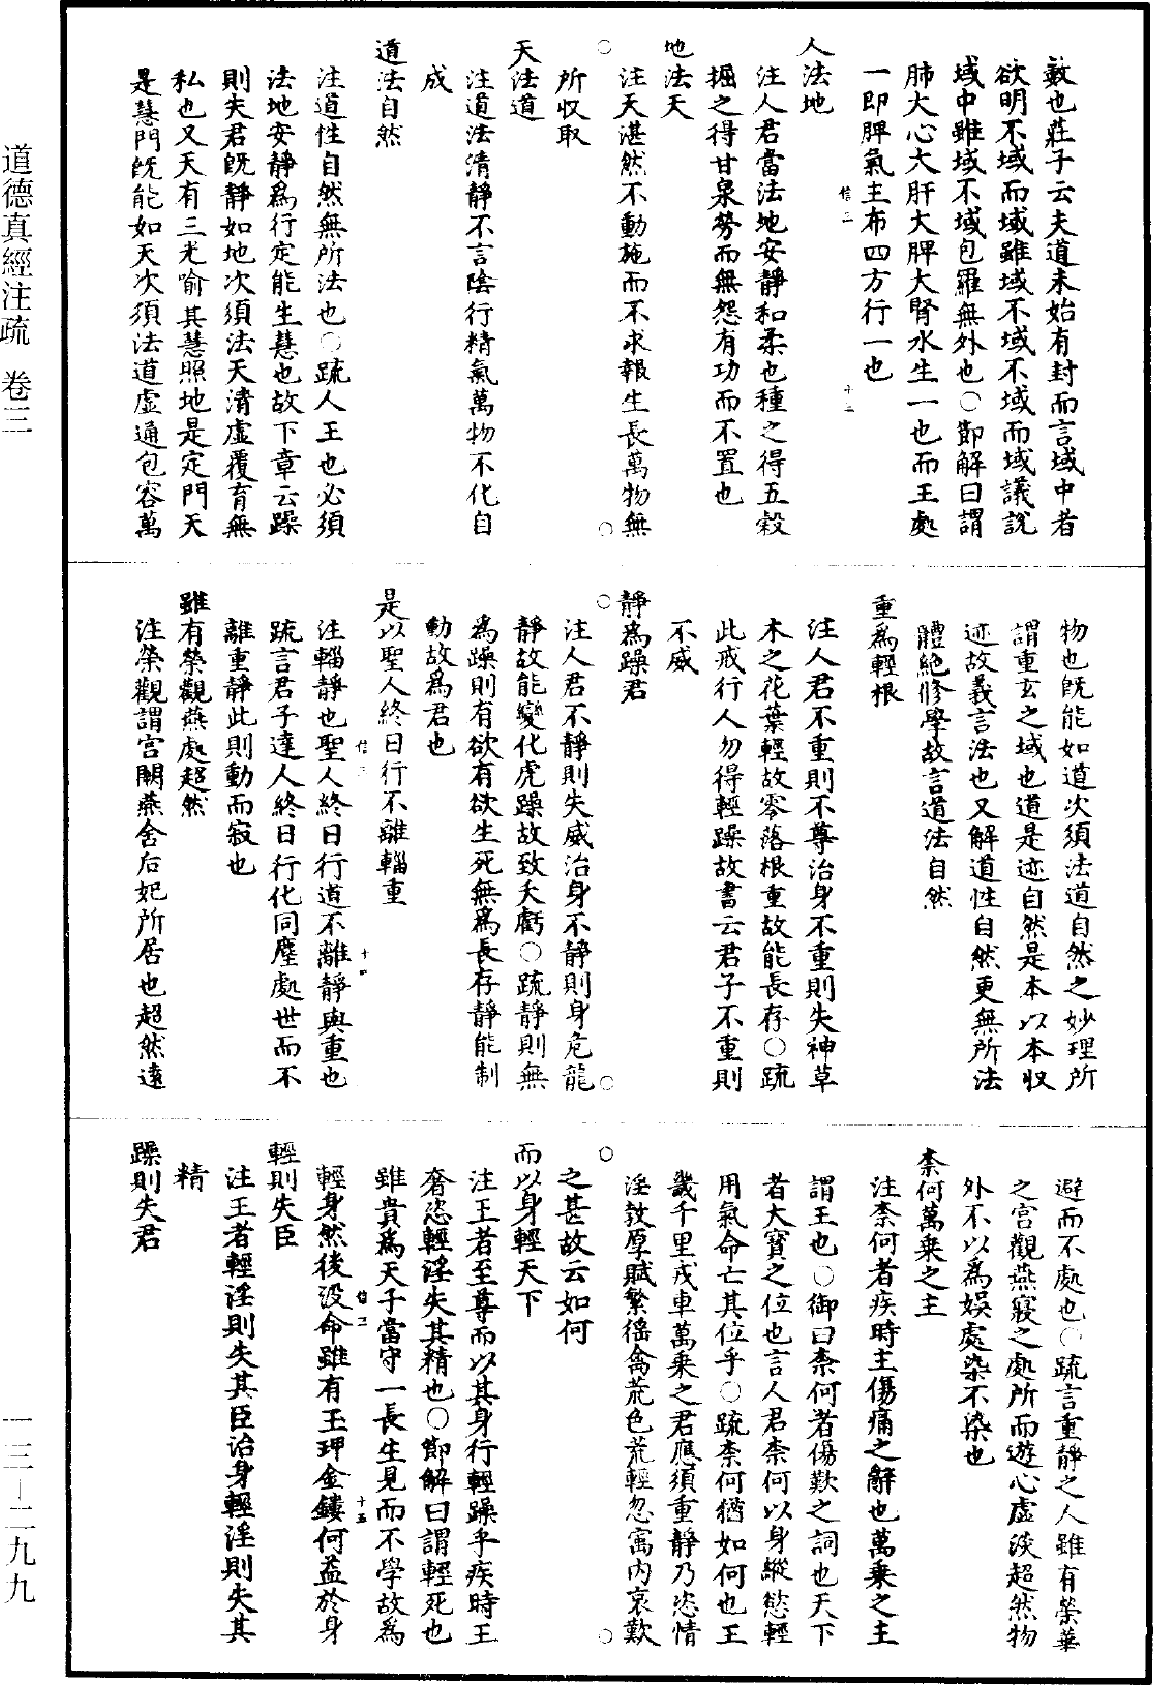 數也莊子云夫道未始有封而言域中者
欲明不域而域雖域不域不域而域議說
域中雖域不域包羅無外也〇節解曰謂
肺大心大肝大脾大腎水生一也而王處
一即脾氣主布四方行一也
信三 十三
人法地
注人君當法地安靜和柔也種之得五穀
掘之得甘泉勞而無怨有功而不置也
地法天
注天湛然不動施而不求報生長萬物無
所收取
天法道
注道法清靜不言陰行精氣萬物不化自
成
道法自然
注道性自然無所法也〇疏人王也必須
法地安靜為行定能生慧也故下章云躁
則失君既靜如地次須法天清虛覆育無
私也又天有三光喻其慧照地是定門天
是慧門既能如天次須法道虛通包容萬
物也既能如道次須法道自然之妙理所
謂重玄之域也道是迹自然是本以本收
迹故義言法也又解道性自然更無所法
體絕修學故言道法自然
重為輕根
注人君不重則不尊治身不重則失神草
木之花葉輕故零落根重故能長存〇疏
此戒行人勿得輕躁故書云君子不重則
不威
靜為躁君
注人君不靜則失威治身不靜則身危龍
靜故能變化虎躁故致夭虧〇疏靜則無
為躁則有欲有欲生死無為長存靜能制
動故為君也
是以聖人終日行不離輜重
注輜靜也聖人終日行道不離靜與重也
信三 十四
疏言君子達人終日行化同塵處世而不
離重靜此則動而寂也
雖有榮觀燕處超然
注榮觀謂宮闕燕舍后妃所居也超然遠
避而不處也〇疏言重靜之人雖有榮華
之宮觀燕寢之處所而遊心虛淡超然物
外不以為娛處染不染也
柰何萬乘之主
注柰何者疾時主傷痛之辭也萬乘之主
謂王也〇御曰柰何者傷歎之詞也天下
者大寶之位也言人君柰何以身縱慾輕
用氣命亡其位乎〇疏柰何猶如何也王
畿千里戎車萬乘之君應須重靜乃恣情
淫敦厚賦繁徭禽荒色荒輕忽寓內哀歎
之甚故云如何
而以身輕天下
注王者至尊而以其身行輕躁乎疾時王
奢恣輕淫失其精也〇節解曰謂輕死也
雖貴為天子當守一長生見而不學故為
輕身然後沒命雖有玉玾金鏤何益於身
信三 十五
輕則失臣
注王者輕淫則失其臣治身輕淫則失其
精
躁則失君
道德真經注疏 卷三
一三—二九九